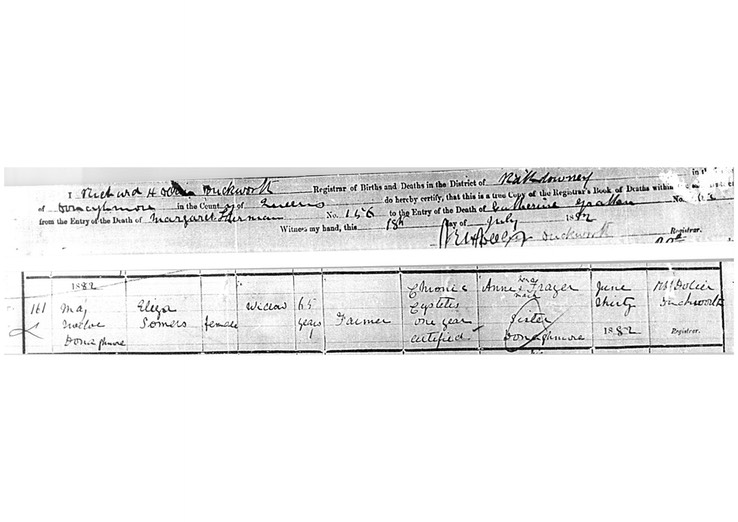 I Richard H Duckworth Registrar of Births and Deaths in the District of Rathdowney in the
of Donaghmore in the County of Queens do hereby certify, that this is a true Copy of the Registrar's Book of Deaths within
from the Entry of the Death of Margaret No. 156 to the Entry of the Death of Catherine Grattan No.
Witness my hand, this 18th day of July 1882
Duckworth Registrar.
161
1882
May
Twelve
Donaghmore
Eliza
Somers
female
Widow
65
years
Farmer
Chronic
Cystitis
one year
certified
Anne Frazer
her
mark
Sister
Donaghmore
June
thirty
1882
Duckworth
Registrar.